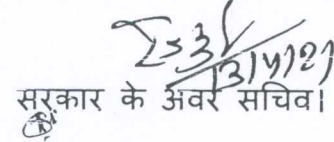 13/4/21
सरकार के अवर सचिव।